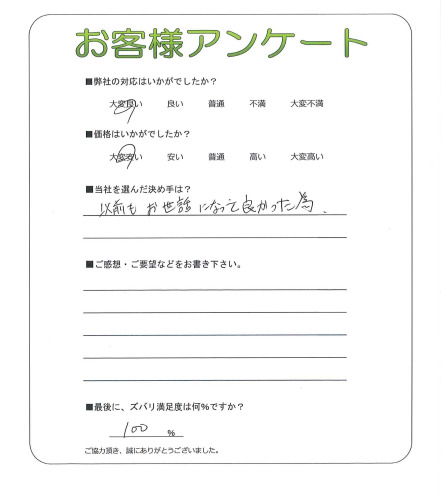 お客様アンケート
■弊社の対応はいかがでしたか？
大変良い 良い 普通 不満 大変不満
■価格はいかがでしたか？
大変安い 安い 普通 高い 大変高い
■当社を選んだ決め手は？
以前もお世話になって良かった為、
■ご感想・ご要望などをお書き下さい。
■最後に、ズバリ満足度は何%ですか？
100 %
ご協力頂き、誠にありがとうございました。